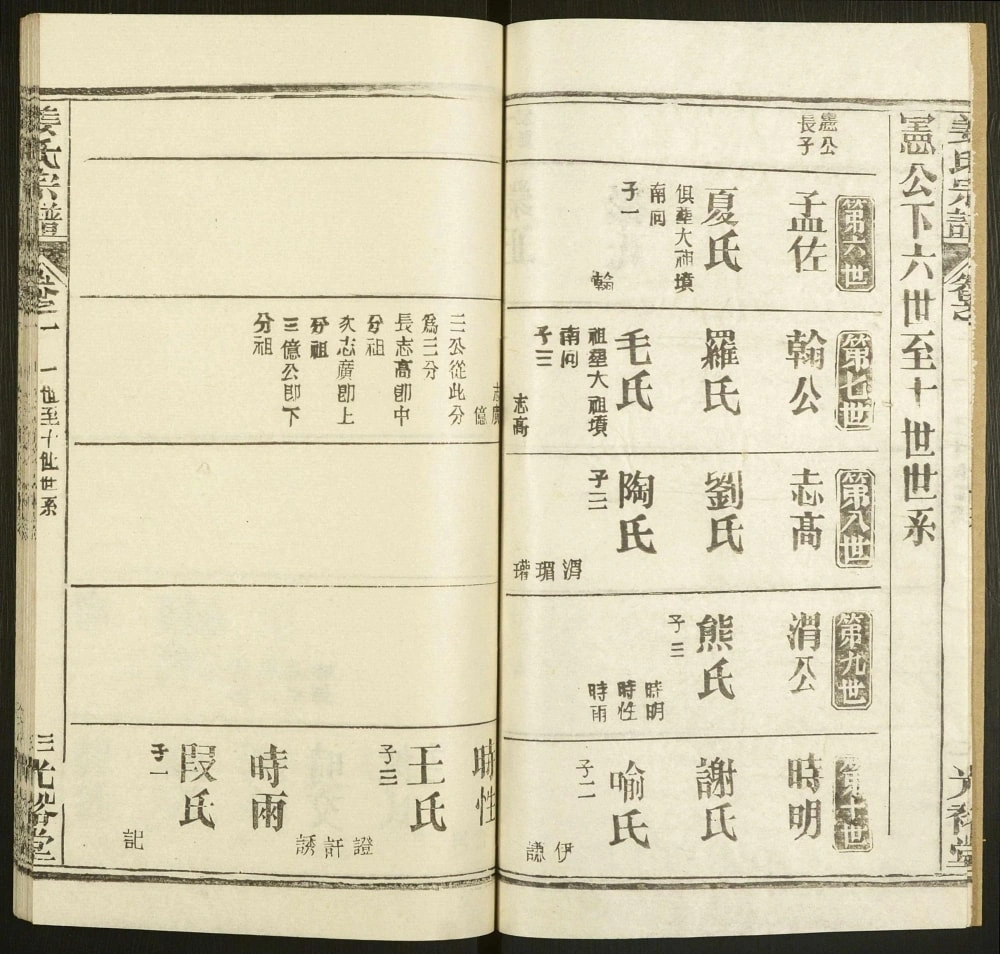 憲公下六世至十世世系
第六世
憲公
長子
孟佐
夏氏
俱塟大祖墳
南向
子一
翰
第七世
翰公
羅氏
毛氏
祖塋大祖墳
南向
子三
志高
志廣
億
三公從此分
爲三分
長志高卽中
分祖
次志廣卽上
分祖
三億公卽下
分祖
第八世
志高
劉氏
陶氏
子三
渭
瑂
瓘
第九世
渭公
熊氏
子三
時明
時性
時雨
第十世
時明
謝氏
喻氏
子二
伊
謙
時性
王氏
子三
證
訐
誘
時雨
段氏
子一
記
姜氏宗譜
卷之一
一世至十世世系
三
光裕堂